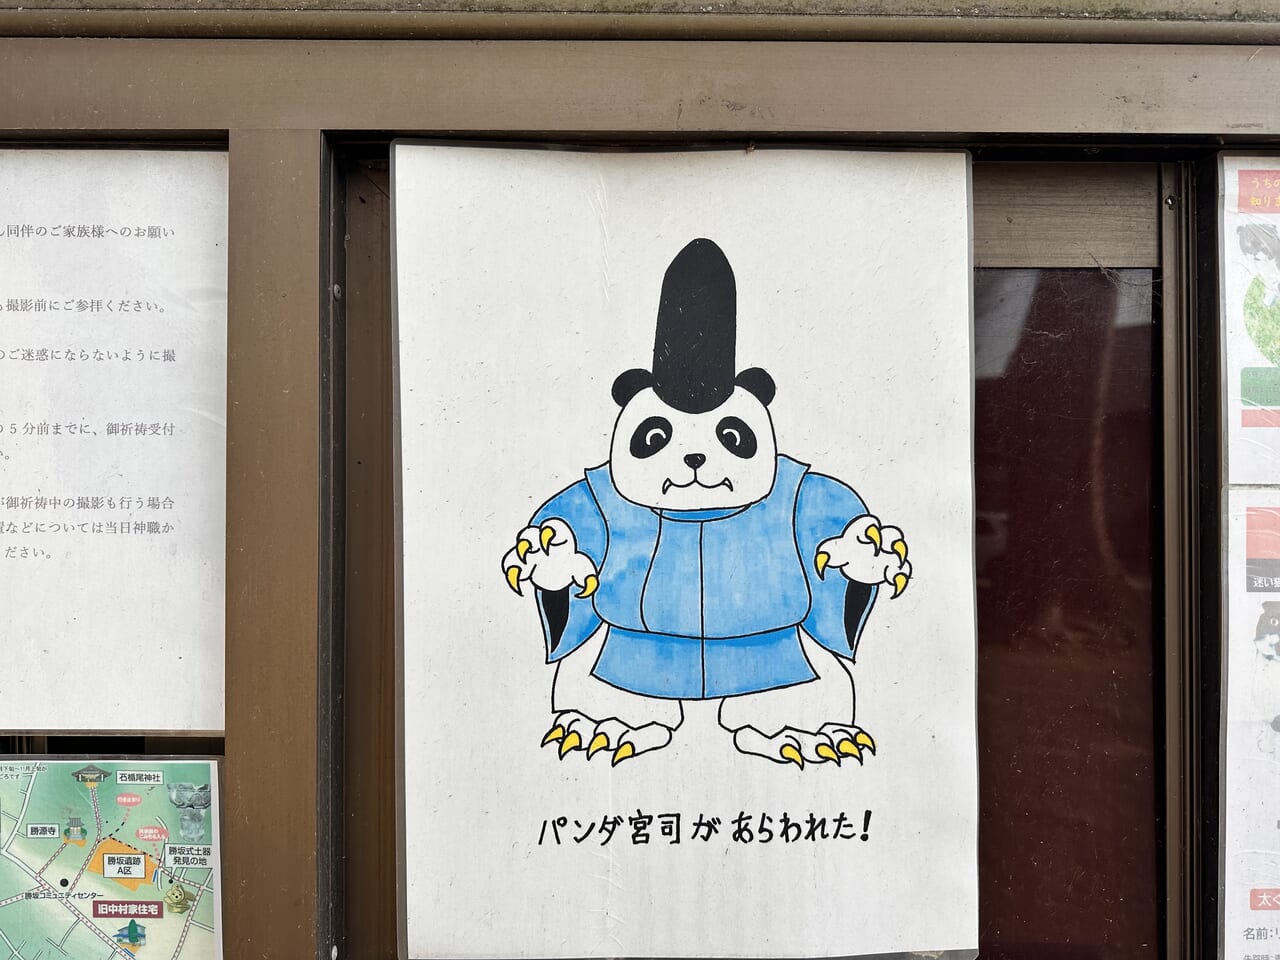 同伴のご家族様へのお願い
撮影前にご参拝ください。
のご迷惑にならないように撮
5分前までに、御祈祷受付
。
御祈祷中の撮影も行う場合
などについては当日神職か
ださい。
石楯尾神社
勝源寺
勝坂式土器
発見の地
勝坂遺跡
A区
勝坂コミュニティセンター
旧中村家住宅
パンダ宮司があらわれた!
うちの
知りま
迷い
太く
名前:リ